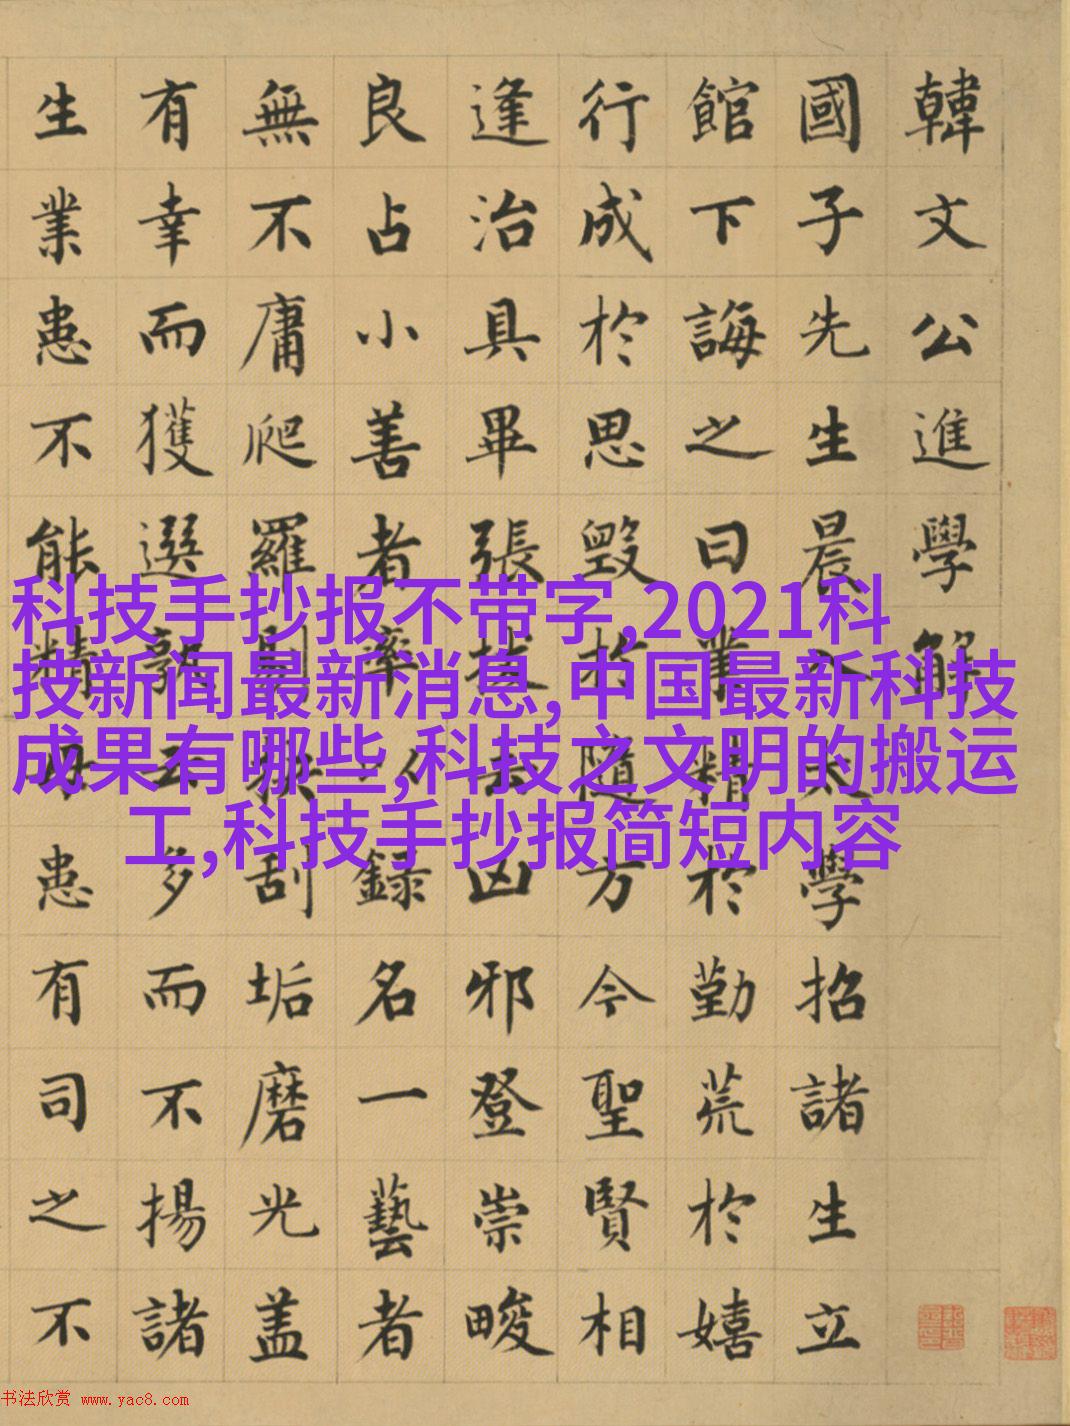 韓文公進學解
國子先生晨入太學招諸生立
館下誨之曰業精於勤荒於嬉
行成於思毀於隨方今聖賢相
逢治具畢張拔去凶邪登崇畯
良占小善者率以録名一藝者
無不庸爬羅剔抉刮垢磨光盖
有幸而獲選孰云多而不揚諸
生業患不能精毋患有司之不
科技手抄报不带字,2021科
技新闻最新消息,中国最新科技
成果有哪些,科技之文明的搬运
工,科技手抄报简短内容
书法欣赏 www.yac8.com